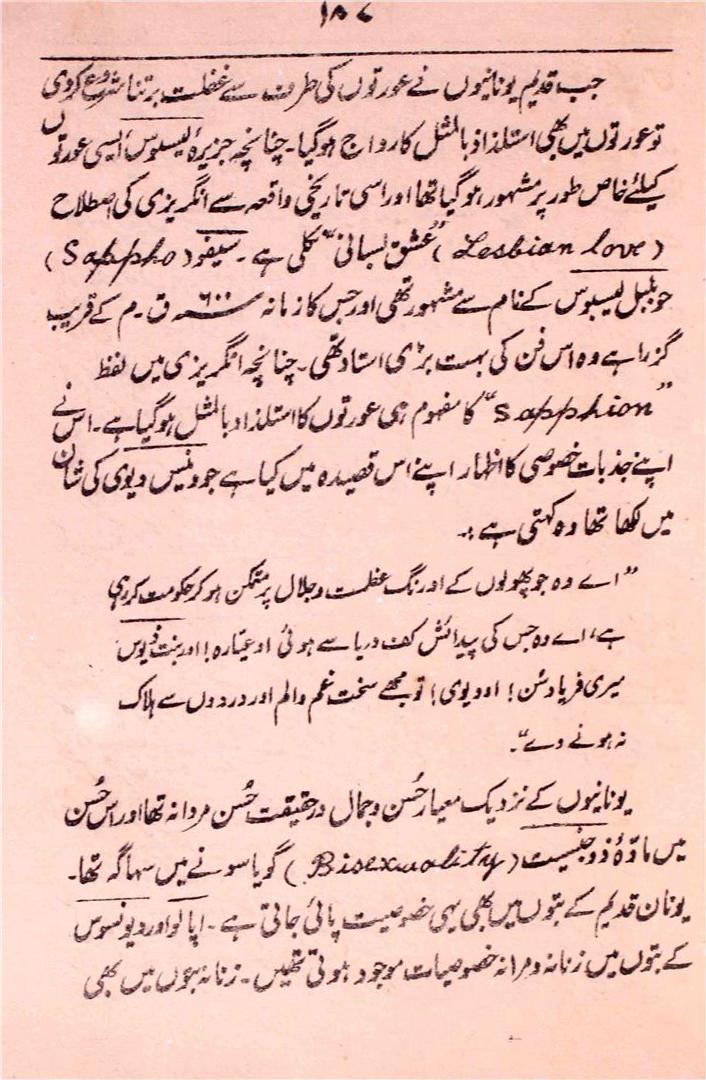 ۱۸۷
جب قدیم یونانیوں نے عورتوں کی طرف سے غفلت برتنا شروع کردی
تو عورتوں میں بھی استلذاذ بالمثل کا رواج ہوگیا۔ چنانچہ جزیرۂ لیسبوس ایسی عورتوں
کیلئے خاص طور پر مشہور ہوگیا تھا اور اسی تاریخی واقعہ سے انگریزی کی اصطلاح
(Lesbian love) "عشق لسبانی" نکلی ہے۔ سیفو (Sappho)
جو بلبل لیسبوس کے نام سے مشہور تھی اور جس کا زمانہ ۶۰۰ ق۔م کے قریب
گزرا ہے وہ اس فن کی بہت بڑی استاد تھی۔ چنانچہ انگریزی میں لفظ
"Sapphion" کا مفہوم ہی عورتوں کا استلذاذ بالمثل ہوگیا ہے۔ اس نے
اپنے جذبات خصوصی کا اظہار اپنے اس قصیدہ میں کیا ہے جو وینس دیوی کی شان
میں لکھا تھا وہ کہتی ہے:۔
"اے وہ جو پھولوں کے اورنگ عظمت و جلال پر متمکن ہوکر حکومت کررہی
ہے، اے وہ جس کی پیدائش کف دریا سے ہوئی او عیّارہ! اور بنت ذیوس
میری فریاد سُن! او دیوی! تو مجھے سخت غم والم اور دردوں سے ہلاک
نہ ہونے دے"۔
یونانیوں کے نزدیک معیار حُسن و جمال درحقیقت حُسن مردانہ تھا اور اس حُسن
میں مادّۂ ذو جنسیت (Bisexuality) گویا سونے میں سہاگہ تھا۔
یونان قدیم کے بتوں میں بھی یہی خصوصیت پائی جاتی ہے۔ اپالو اور دیونسوس
کے بتوں میں زنانہ و مرانہ خصوصیات موجود ہوتی تھیں۔ زنانہ بتوں میں بھی